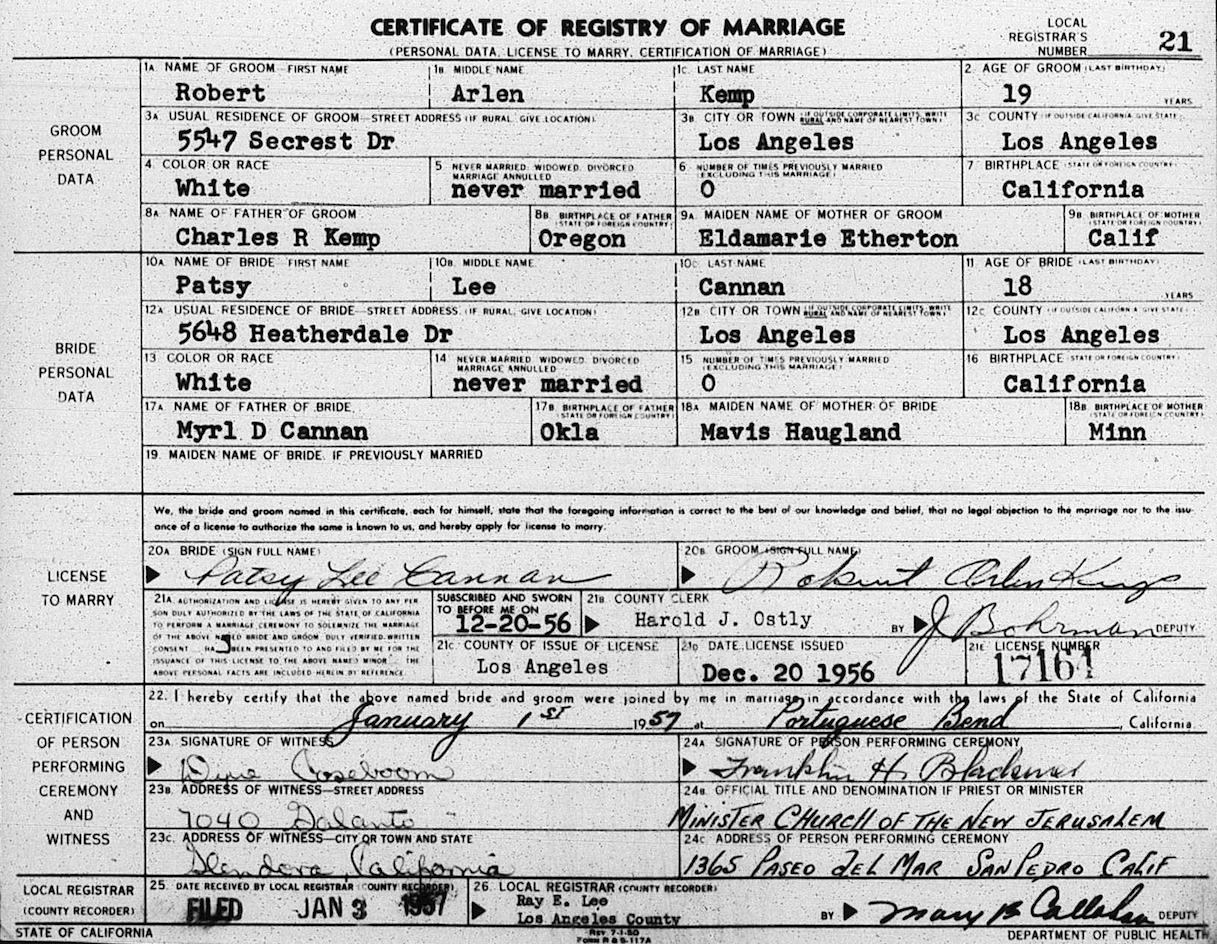 CERTIFICATE OF REGISTRY OF MARRIAGE
(PERSONAL DATA, LICENSE TO MARRY, CERTIFICATION OF MARRIAGE)
LOCAL REGISTRAR'S NUMBER 21
GROOM PERSONAL DATA
1A NAME OF GROOM—FIRST NAME 1B MIDDLE NAME 1C LAST NAME 2. AGE OF GROOM (LAST BIRTHDAY)
Robert Arlen Kemp 19 YEARS
3A USUAL RESIDENCE OF GROOM—STREET ADDRESS (IF RURAL, GIVE LOCATION) 3B CITY OR TOWN (IF OUTSIDE CORPORATE LIMITS, WRITE RURAL AND NAME OF NEAREST TOWN) 3C COUNTY (IF OUTSIDE CALIFORNIA, GIVE STATE)
5547 Secrest Dr Los Angeles Los Angeles
4 COLOR OR RACE 5 NEVER MARRIED, WIDOWED, DIVORCED MARRIAGE ANNULLED 6 NUMBER OF TIMES PREVIOUSLY MARRIED (EXCLUDING THIS MARRIAGE) 7 BIRTHPLACE (STATE OR FOREIGN COUNTRY)
White never married 0 California
8A NAME OF FATHER OF GROOM 8B BIRTHPLACE OF FATHER (STATE OR FOREIGN COUNTRY) 9A. MAIDEN NAME OF MOTHER OF GROOM 9B BIRTHPLACE OF MOTHER (STATE OR FOREIGN COUNTRY)
Charles R Kemp Oregon Eldamarie Etherton Calif
BRIDE PERSONAL DATA
10A NAME OF BRIDE FIRST NAME 10B. MIDDLE NAME 10C LAST NAME 11 AGE OF BRIDE (LAST BIRTHDAY)
Patsy Lee Cannan 18 YEARS
12A USUAL RESIDENCE OF BRIDE—STREET ADDRESS (IF RURAL, GIVE LOCATION) 12B CITY OR TOWN (IF OUTSIDE CORPORATE LIMITS, WRITE RURAL AND NAME OF NEAREST TOWN) 12C COUNTY (IF OUTSIDE CALIFORNIA GIVE STATE)
5648 Heatherdale Dr Los Angeles Los Angeles
13 COLOR OR RACE 14 NEVER MARRIED, WIDOWED, DIVORCED MARRIAGE ANNULLED 15 NUMBER OF TIMES PREVIOUSLY MARRIED (EXCLUDING THIS MARRIAGE) 16 BIRTHPLACE (STATE OR FOREIGN COUNTRY)
White never married 0 California
17A NAME OF FATHER OF BRIDE 17B BIRTHPLACE OF FATHER (STATE OR FOREIGN COUNTRY) 18A MAIDEN NAME OF MOTHER OF BRIDE 18B. BIRTHPLACE OF MOTHER (STATE OR FOREIGN COUNTRY)
Myrl D Cannan Okla Mavis Haugland Minn
19. MAIDEN NAME OF BRIDE IF PREVIOUSLY MARRIED
LICENSE TO MARRY
We, the bride and groom named in this certificate, each for himself, state that the foregoing information is correct to the best of our knowledge and belief, that no legal objection to the marriage nor to the issu-
ance of a license to authorize the same is known to us, and hereby apply for license to marry.
20A BRIDE (SIGN FULL NAME) 20B GROOM (SIGN FULL NAME)
Patsy Lee Cannan Robert Arlen Kemp
21A. AUTHORIZATION AND LICENSE IS HEREBY GIVEN TO ANY PER
SON DULY AUTHORIZED BY THE LAWS OF THE STATE OF CALIFORNIA
TO PERFORM A MARRIAGE CEREMONY TO SOLEMNIZE THE MARRIAGE
OF THE ABOVE NAMED BRIDE AND GROOM DULY VERIFIED. WRITTEN
CONSENT HAS BEEN PRESENTED TO AND FILED BY ME FOR THE
ISSUANCE OF THIS LICENSE TO THE ABOVE NAMED MINOR THE
ABOVE PERSONAL FACTS ARE INCLUDED HEREIN BY REFERENCE.
SUBSCRIBED AND SWORN TO BEFORE ME ON
12-20-56
21B COUNTY CLERK
Harold J. Ostly BY J Bohrman DEPUTY
21C COUNTY OF ISSUE OF LICENSE 21D DATE LICENSE ISSUED 21E LICENSE NUMBER
Los Angeles Dec. 20 1956 17164
CERTIFICATION OF PERSON PERFORMING CEREMONY AND WITNESS
22. I hereby certify that the above named bride and groom were joined by me in marriage in accordance with the laws of the State of California
on January 1st 1957 at Portuguese Bend, California
23A SIGNATURE OF WITNESS 24A SIGNATURE OF PERSON PERFORMING CEREMONY
Franklin H.
23B. ADDRESS OF WITNESS—STREET ADDRESS 24B OFFICIAL TITLE AND DENOMINATION IF PRIEST OR MINISTER
7040 MINISTER CHURCH OF THE NEW JERUSALEM
23C. ADDRESS OF WITNESS—CITY OR TOWN AND STATE 24C ADDRESS OF PERSON PERFORMING CEREMONY
Glendora, California 1365 PASEO DEL MAR SAN PEDRO CALIF
LOCAL REGISTRAR (COUNTY RECORDER)
25 DATE RECEIVED BY LOCAL REGISTRAR (COUNTY RECORDER) 26. LOCAL REGISTRAR (COUNTY RECORDER)
FILED JAN 3 1957 Ray E. Lee
Los Angeles County BY Mary B Callahan DEPUTY
STATE OF CALIFORNIA REV 7-1-50 FORM R & S-117A DEPARTMENT OF PUBLIC HEALTH